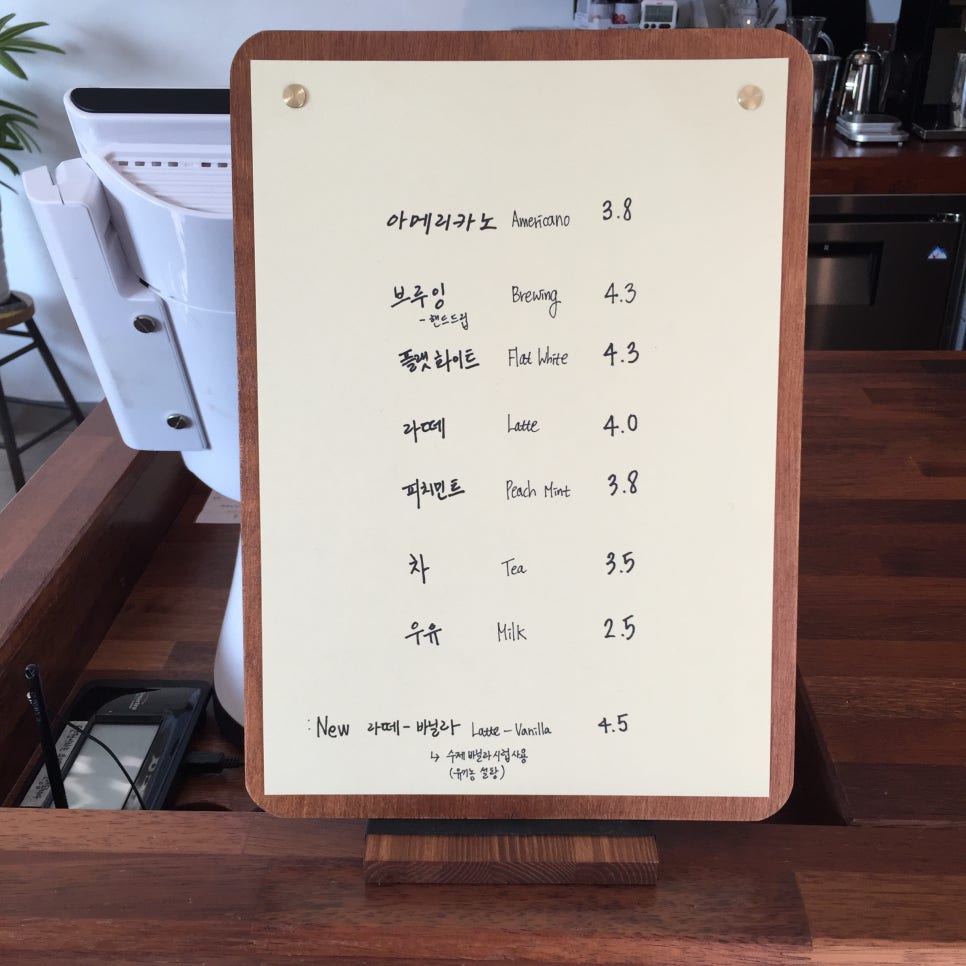 아메리카노 Americano 3.8
브루잉 Brewing 4.3
- 핸드드립
플랫 화이트 Flat White 4.3
라떼 Latte 4.0
피치민트 Peach Mint 3.8
차 Tea 3.5
우유 Milk 2.5
: New 라떼 - 바닐라 Latte - Vanilla 4.5
↳ 수제 바닐라 시럽 사용
(유기농 설탕)